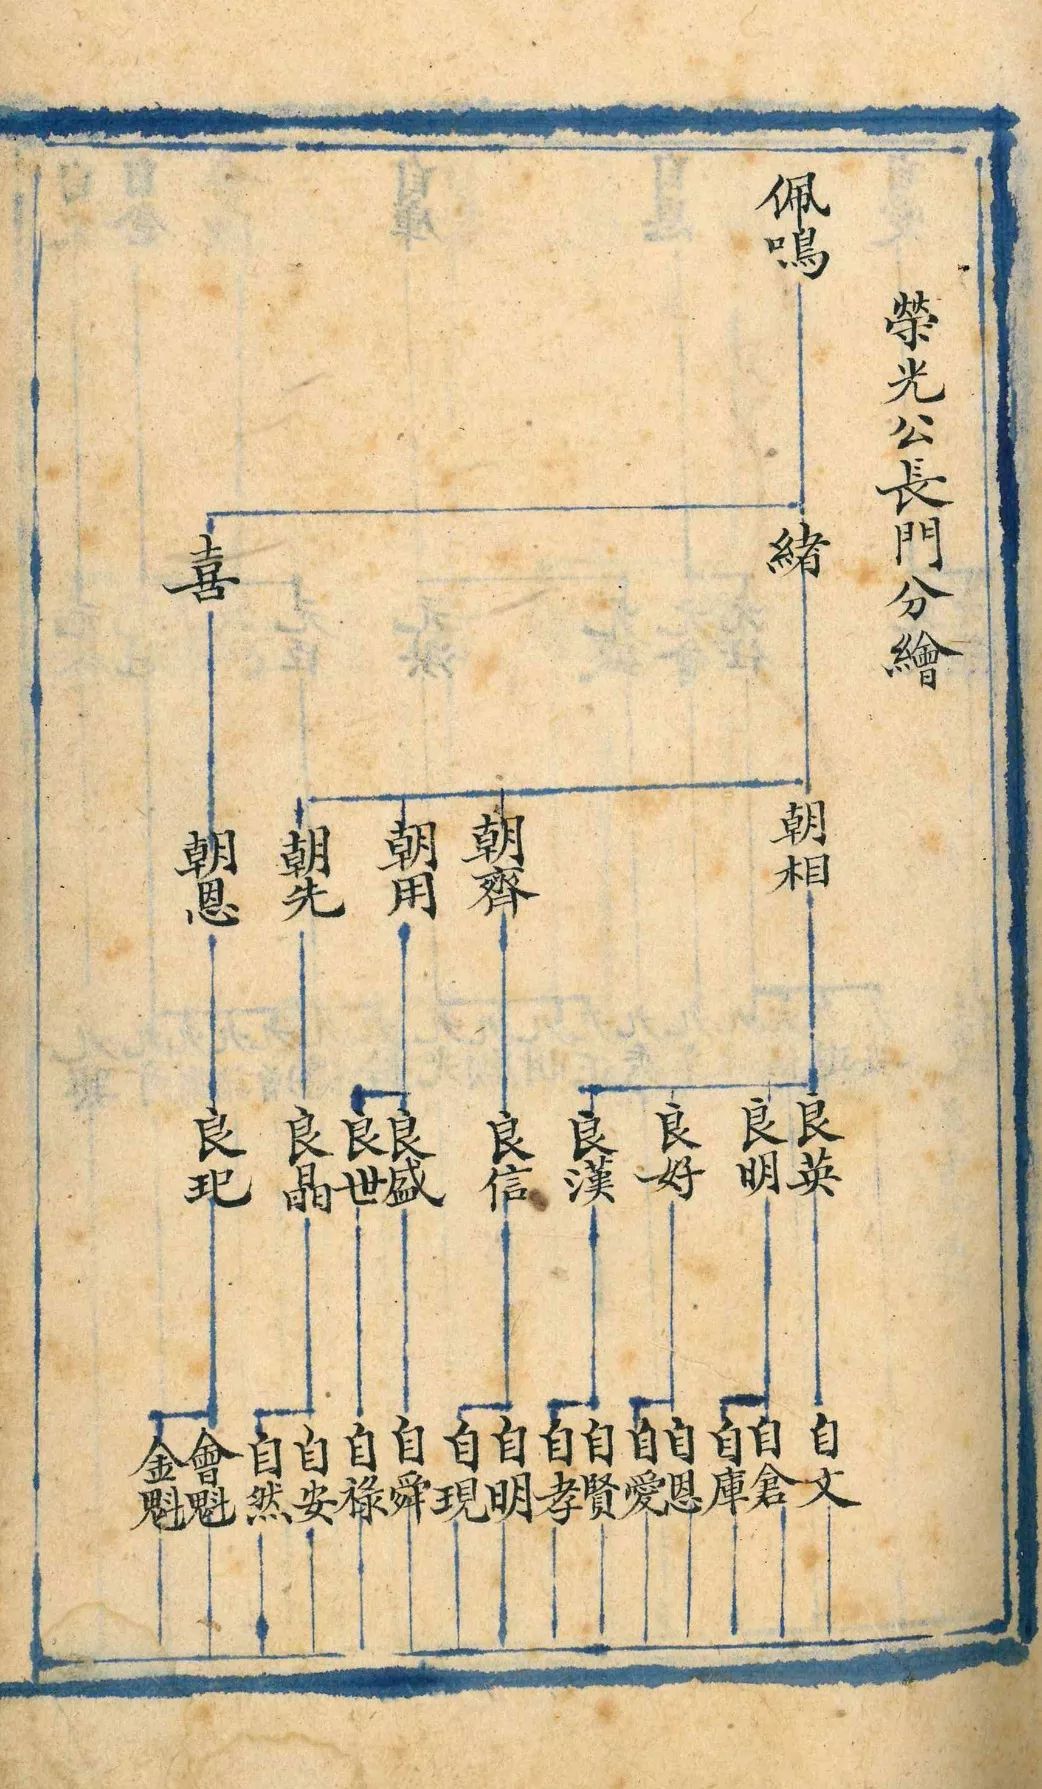 榮光公長門分繪
佩鳴
緒
喜
朝相
朝齊
朝用
朝先
朝恩
良英
良明
良好
良漢
良信
良盛
良世
良晶
良玘
自文
自倉
自庫
自恩
自愛
自賢
自孝
自明
自現
自舜
自祿
自安
自然
會魁
金魁